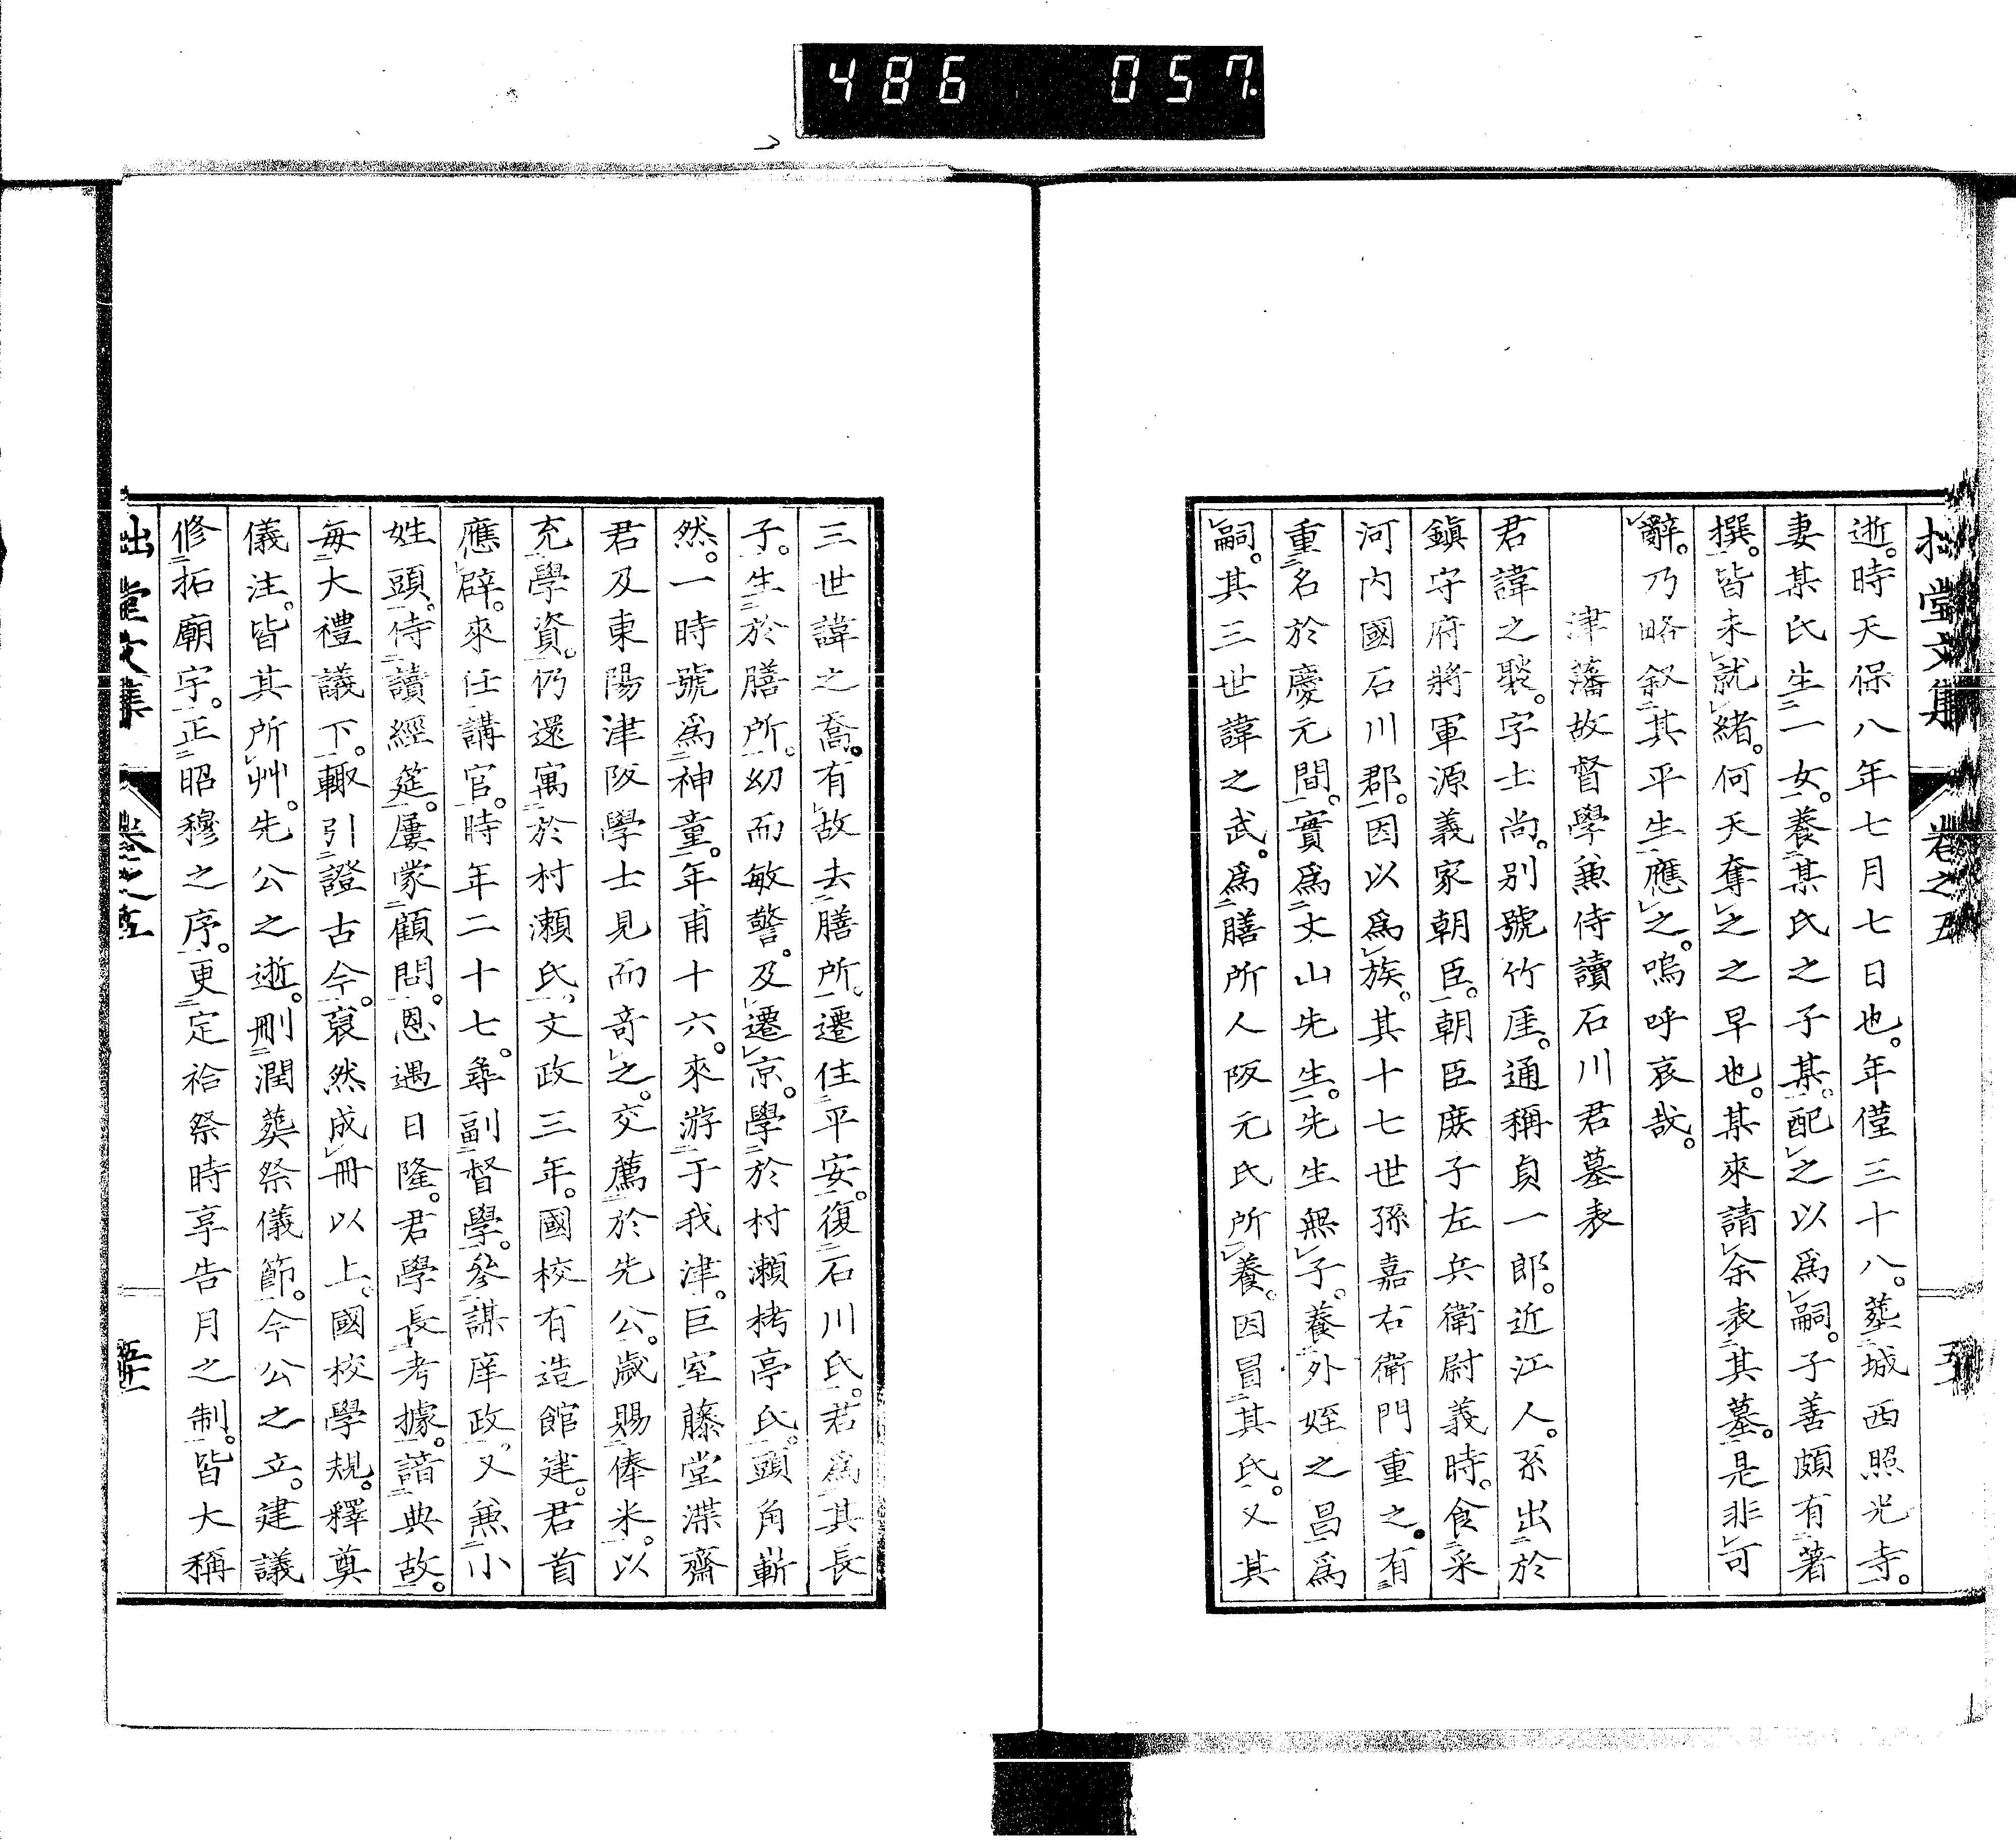 486 057
拙堂文集 卷之五
逝。時天保八年七月七日也。年僅三十八。葬城西照光寺。
妻某氏生一女。養某氏之子某。配之以爲嗣。子善頗有著
撰。皆未就緒。何天奪之之早也。某來請余表其墓。是非可
辭。乃略叙其平生應之。嗚呼哀哉。
津藩故督學兼侍讀石川君墓表
君諱之褧。字士尚。別號竹厓。通稱貞一郎。近江人。系出於
鎭守府將軍源義家朝臣。朝臣庶子左兵衛尉義時。食采
河内國石川郡。因以爲族。其十七世孫嘉右衛門重之。有
重名於慶元間。實爲丈山先生。先生無子。養外姪之昌爲
嗣。其三世諱之武。爲膳所人阪元氏所養。因冒其氏。又其
三世諱之喬。有故去膳所。遷住平安。復石川氏。君爲其長
子。生於膳所。幼而敏警。及遷京。學於村瀬栲亭氏。頭角嶄
然。一時號爲神童。年甫十六。來游于我津。巨室藤堂渫齋
君及東陽津阪學士見而奇之。交薦於先公。歲賜俸米。以
充學資。仍還寓於村瀬氏。文政三年。國校有造館建。君首
應辟。來任講官。時年二十七。尋副督學。參謀庠政。又兼小
姓頭。侍讀經筵。屢蒙顧問。恩遇日隆。君學長考據。諳典故。
毎大禮議下。輙引證古今。裒然成冊以上。國校學規。釋奠
儀注。皆其所艸。先公之逝。刪潤葬祭儀節。今公之立。建議
修拓廟宇。正昭穆之序。更定祫祭時享告月之制。皆大稱
拙堂文集 卷之五